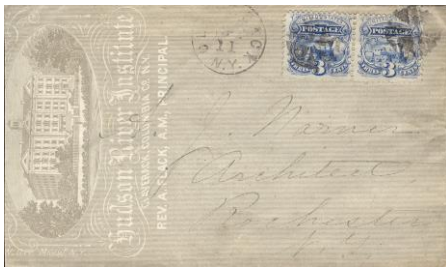 Hudson River Institute
CLAVERACK, COLUMBIA CO. N.Y.
REV. A. FLACK, A.M., PRINCIPAL.
N.Y.
POSTAGE
3
CENTS
POSTAGE
3
CENTS
Warner
Architect
Rochester
N.Y.